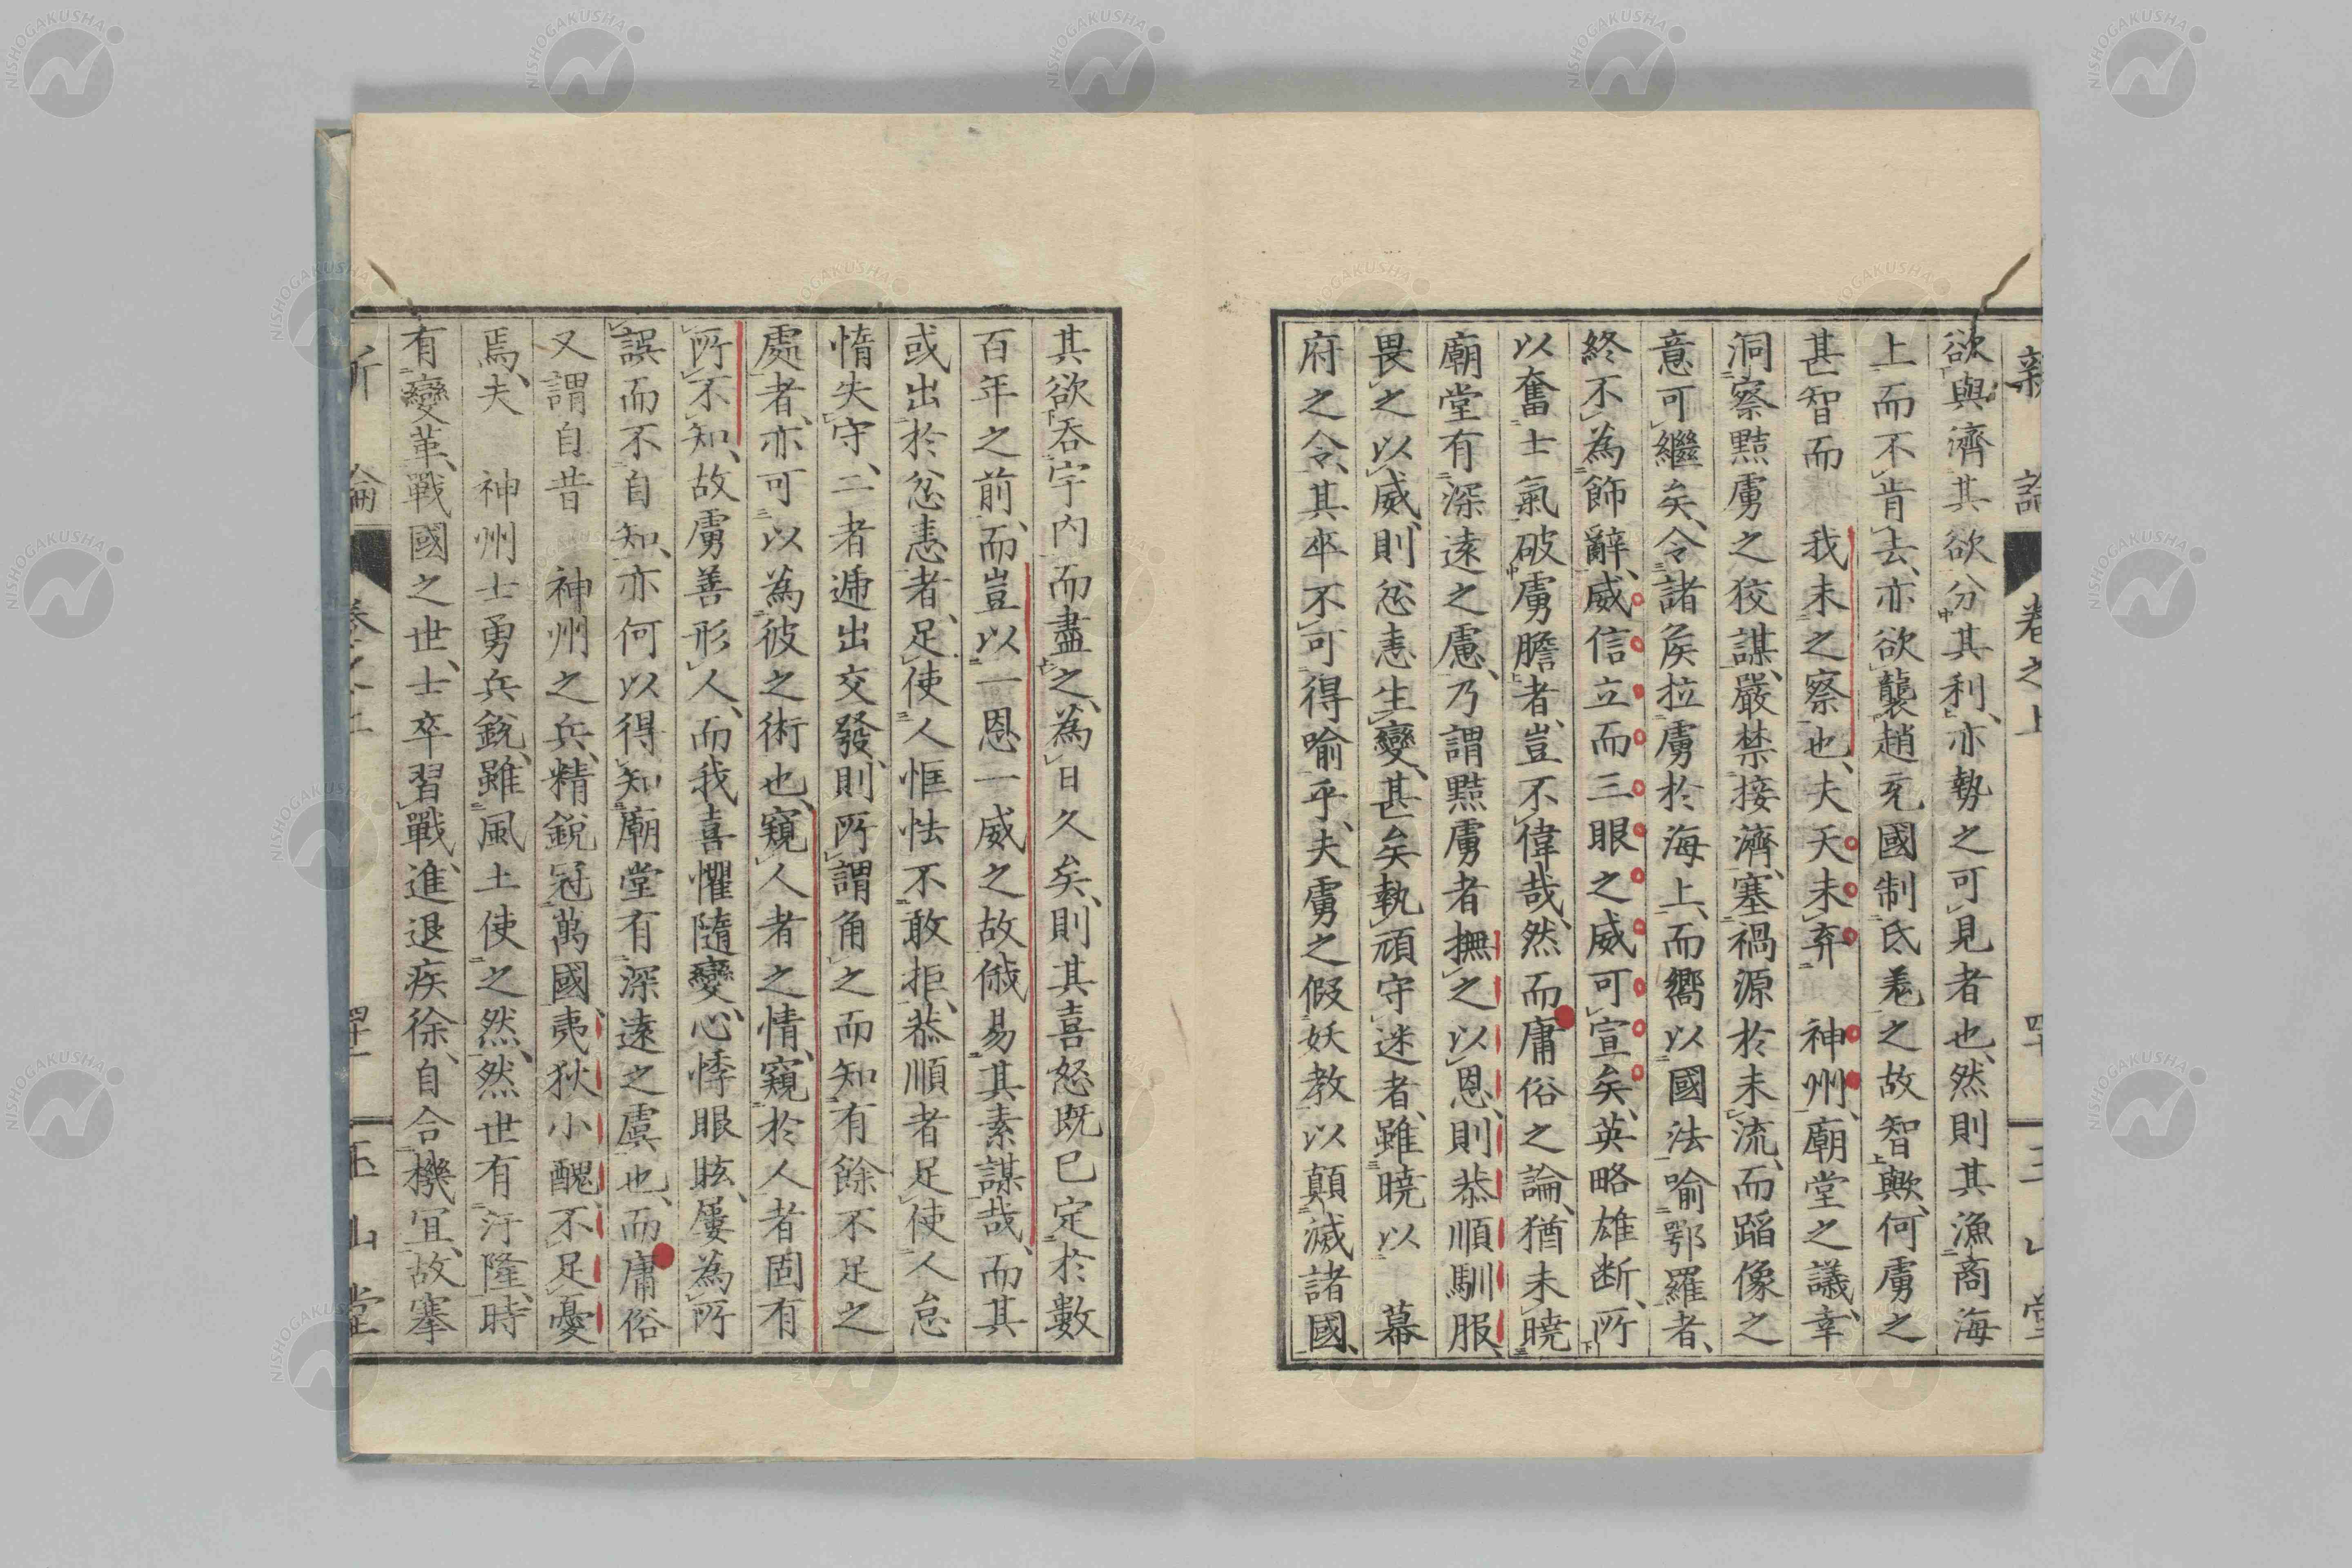 新論 卷之上 三山堂
欲與濟其欲分其利、亦勢之可見者也、然則其漁商海
上而不肯去、亦欲襲趙充國制氐羗之故智歟、何虜之
甚智而 我未之察也、夫天未弃 神州、廟堂之議、幸
洞察黠虜之狡謀、嚴禁接濟、塞禍源於未流、而蹈像之
意可繼矣、令諸矦拉虜於海上、而嚮以國法喻鄂羅者、
終不為飾辭、威信立而三眼之威可宣矣、英略雄断、所
以奮士氣破虜膽者、豈不偉哉、然而庸俗之論、猶未曉
廟堂有深遠之慮、乃謂黠虜者撫之以恩、則恭順馴服、
畏之以威、則忿恚生變、甚矣執頑守迷者、雖曉以 幕
府之令、其卒不可得喻乎、夫虜之假妖教以顛滅諸國、
其欲吞宇内而盡之、為日久矣、則其喜怒既已定於數
百年之前、而豈以一恩一威之故俄易其素謀哉、而其
或出於忿恚者、足使人恇怯不敢拒、恭順者足使人怠
惰失守、二者遞出交發、則所謂角之而知有餘不足之
處者、亦可以為彼之術也、窺人者之情、窺於人者固有
所不知、故虜善形人、而我喜懼隨變、心悸眼眩、屡為所
誤而不自知、亦何以得知廟堂有深遠之虞也、而庸俗
又謂自昔 神州之兵、精銳冠萬國、夷狄小醜、不足憂
焉、夫 神州士勇兵銳、雖風土使之然、然世有汙隆、時
有變革、戰國之世、士卒習戰、進退疾徐、自合機宜、故搴
論 玉山堂